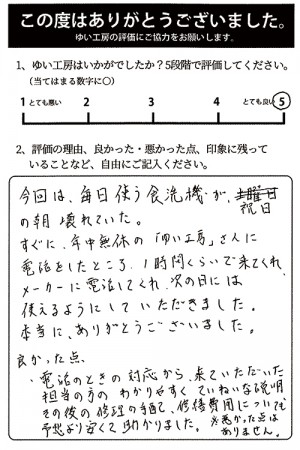 この度はありがとうございました。
ゆい工房の評価にご協力をお願いします。
1、ゆい工房はいかがでしたか？5段階で評価してください。
（当てはまる数字に○）
1 とても悪い 2 3 4 とても良い 5
2、評価の理由、良かった・悪かった点、印象に残って
いることなど、自由にご記入ください。
今回は、毎日使う食洗機が、土曜日
祝日
の朝壊れていた。
すぐに、年中無休の「ゆい工房」さんに
電話をしたところ、1時間くらいで来てくれ、
メーカーに電話してくれ、次の日には
使えるようにしていただきました。
本当に、ありがとうございました。
良かった点
・電話のときの対応から、来ていただいた
担当の方のわかりやすくていねいな説明
その後の修理の手配で、修繕費用についても
予想より安くて助かりました。
※悪かった点は
ありません。